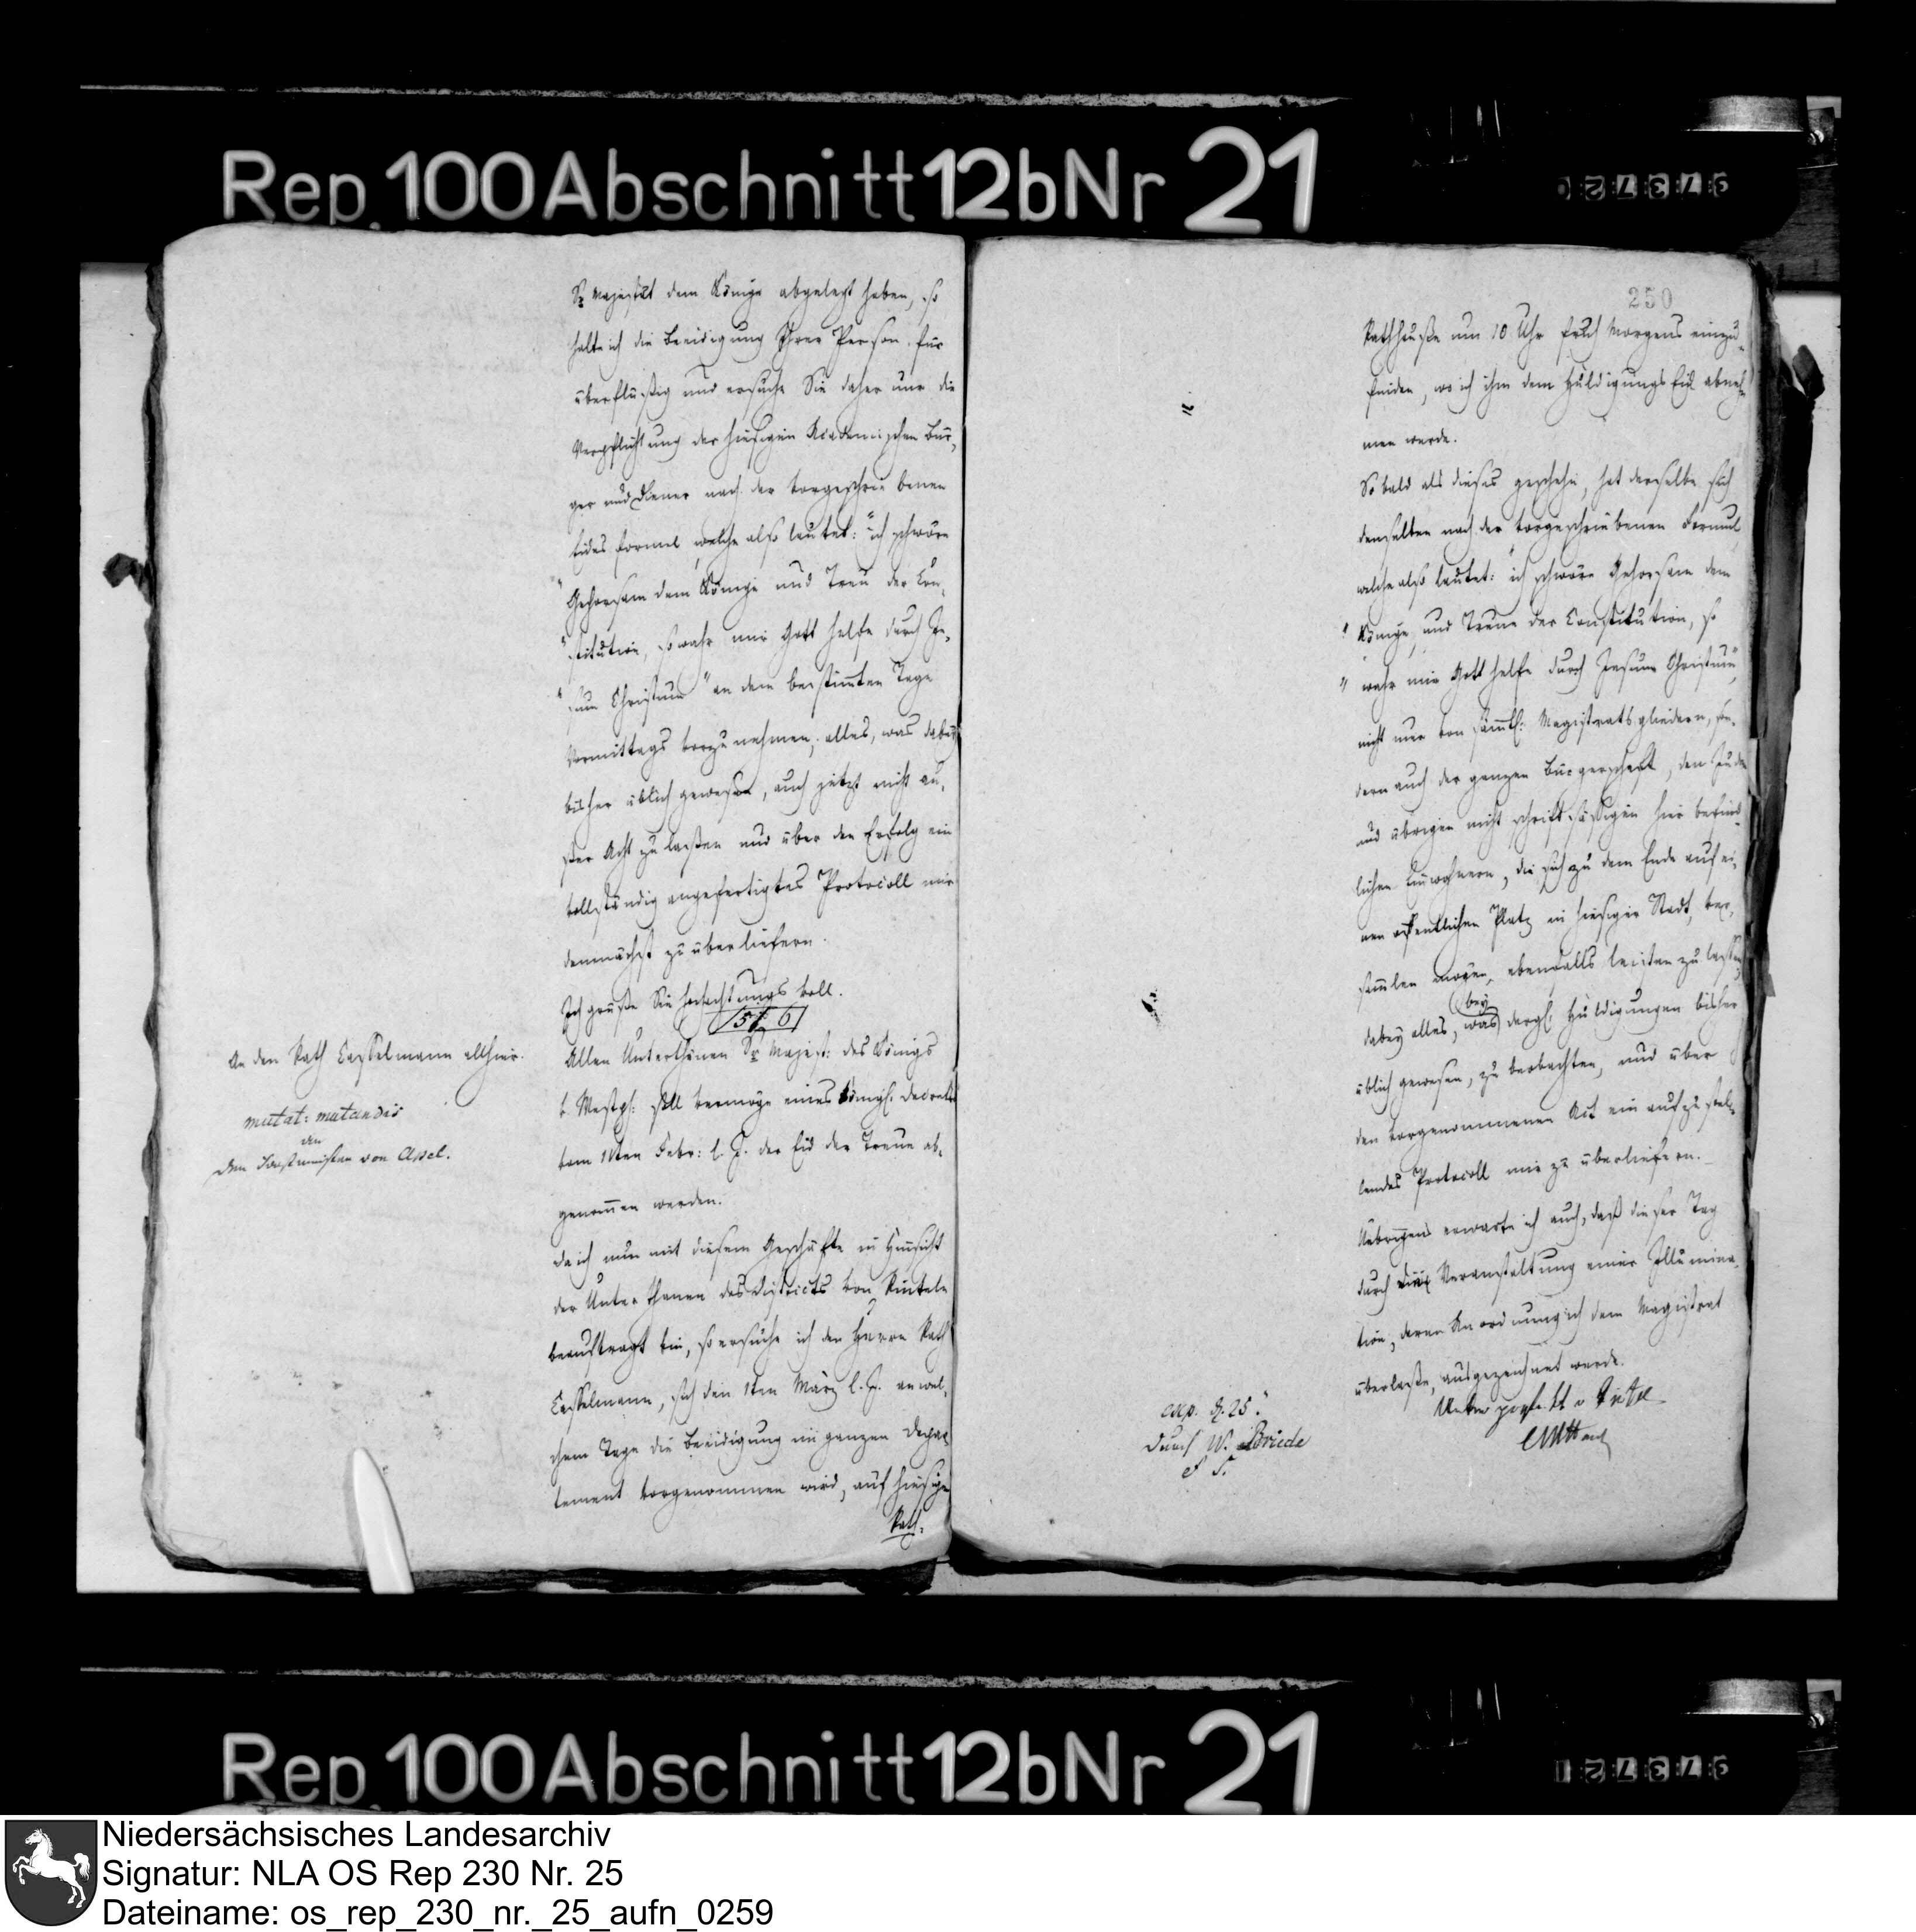 Rep. 100 Abschnitt 12b Nr 21
Sr Majestät dem Könige abgelegt haben, so
halte ich die Beeidigung Ihrer Person für
überflüßig und ersuche Sie daher nur die
Verpflichtung der hiesigen Academischen Bür-
ger und Diener nach der vorgeschrie benen
Eides formel, welche also lautet: "ich schwöre
" Gehorsam dem Könige und Treue der Con-
" stitution, so wahr mir Gott helfe durch Je-
" sum Christum" an dem bestimten Tage
Vormittags vorzunehmen, alles, was dabey
bisher üblich gewesen, auch jetzt nicht au-
ßer Acht zu laßen und über den Erfolg ein
vollständig angefertigtes Protocoll mir
demnächst zu überliefern.
Ich grüße Sie hochachtungsvoll.
An den Rath Casselmann allhier.
mutat: mutandis
an
den von Apel.
Allen Unterthanen Sr Majest: des Königs
v. Westph: soll vermöge eines Königl. Decrets
vom 11ten Febr: l. J. der Eid der Treue ab-
genom̄en werden.
da ich nun mit diesem Geschäfte in Hinsicht
der Unterthanen des Districts von Rinteln
beauftragt bin, so ersuche ich den Herrn Rath
Casselmann, sich den 1ten März l. J. an wel-
chem Tage die Beeidigung im ganzen Depar-
tement vorgenommen wird, auf hiesigem
Rath-
250
Rathhauße um 10 Uhr früh Morgens einzu-
finden, wo ich ihm dem Huldigungs Eid abneh-
men werde.
So bald als dieses geschehn, hat derselbe sich
denselben nach der vorgeschriebenen Formul,
welche also lautet: "ich schwöre Gehorsam dem
" Könige, und Treue der Constitution, so
" wahr mir Gott helfe durch Jesum Christum",
nicht nur von sämtl: Magistratsgliedern, son-
dern auch der ganzen Bürgerschaft, den Juden
und übrigen nicht schriftsäßigen hier befind-
lichen Einwohnern, die sich zu dem Ende auf ei-
nen öffentlichen Platz in hiesiger Stadt, ver-
samlen mögen, ebenfalls leisten zu laßen,
bey
dabey alles, was dergl: Huldigungen bisher
üblich gewesen, zu beobachten, und über
den vorgenommenen Act ein aufzustel-
lendes Protocoll mir zu überliefern.
Uebrigens erwarte ich auch, daß dieser Tag
durch Veranstaltung einer Illumina-
tion, deren Anordnung ich dem Magistrat
überlaße, ausgezeichnet werde.
exp. d. 25.
durch W. Briede
Rep. 100 Abschnitt 12b Nr 21
Niedersächsisches Landesarchiv
Signatur: NLA OS Rep 230 Nr. 25
Dateiname: os_rep_230_nr._25_aufn_0259